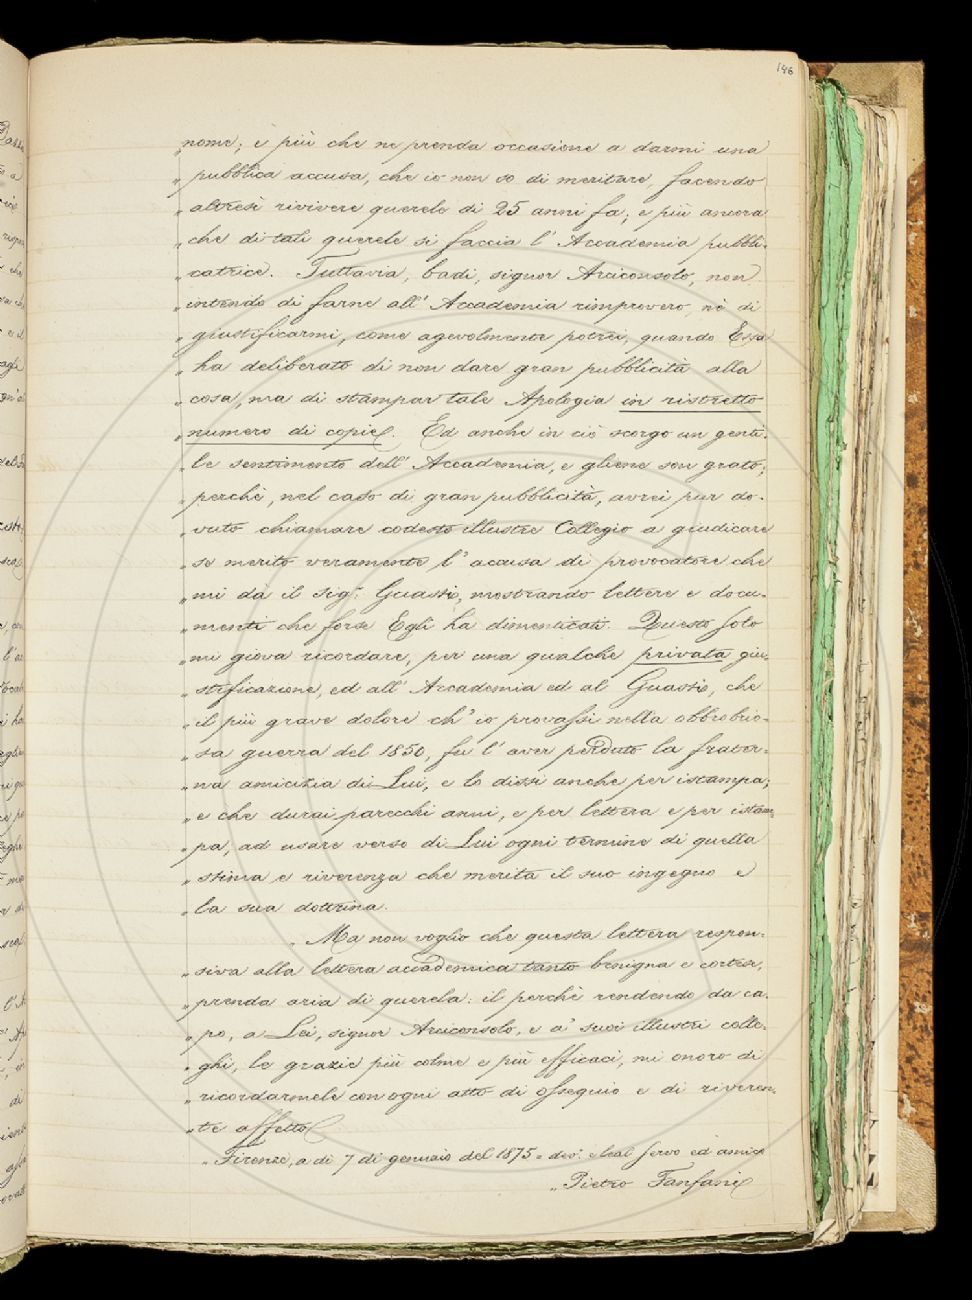 146
„ nome; è più che ne prenda occasione a darmi una
„ pubblica accusa, che io non so di meritare, facendo
„ altresì rivivere querele di 25 anni fa; e più ancora
„ che di tali querele si faccia l'Accademia pubbli-
„ catrice. Tuttavia, badi, signor Arciconsolo, non
„ intendo di farne all'Accademia rimprovero, nè di
„ giustificarmi, come agevolmente potrei, quando Essa
„ ha deliberato di non dare gran pubblicità alla
„ cosa, ma di stampar tale Apologia in ristretto
„ numero di copie. Ed anche in ciò scorgo un genti-
„ le sentimento dell'Accademia, e gliene son grato;
„ perchè, nel caso di gran pubblicità, avrei pur do-
„ vuto chiamare codesto illustre Collegio a giudicare
„ se merito veramente l'accusa di provocatore che
„ mi dà il sig.r Guasti, mostrando lettere e docu-
„ menti che forse Egli ha dimenticati. Questo solo
„ mi giova ricordare, per una qualche privata giu-
„ stificazione, ed all'Accademia ed al Guasti, che
„ il più grave dolore ch'io provassi nella obbrobrio-
„ sa guerra del 1850, fu l'aver perduto la frater-
„ na amicizia di Lui, e lo dissi anche per istampa;
„ e che durai parecchi anni, e per lettera e per istam-
„ pa, ad usare verso di Lui ogni termine di quella
„ stima e riverenza che merita il suo ingegno e
„ la sua dottrina.
„ Ma non voglio che questa lettera respon-
„ siva alla lettera accademica tanto benigna e cortese,
„ prenda aria di querela: il perchè rendendo da ca-
„ po, a Lei, signor Arciconsolo, e a' suoi illustri colle-
„ ghi, le grazie più colme e più efficaci, mi onoro di
„ ricordarmele con ogni atto di ossequio e di riveren-
„ te affetto
„ Firenze, a dì 7 di gennaio del 1875 = dev. servo ed amico
„ Pietro Fanfani